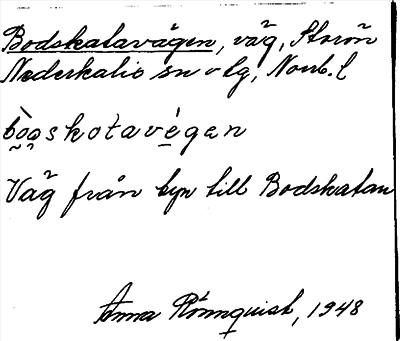 Bodskatavägen, väg, Storön
Nederkalix sn o lg, Norrb. l
bòo̯skotavé̠gen
Väg från byn till Bodskatan
Anna Rönnquist, 1948